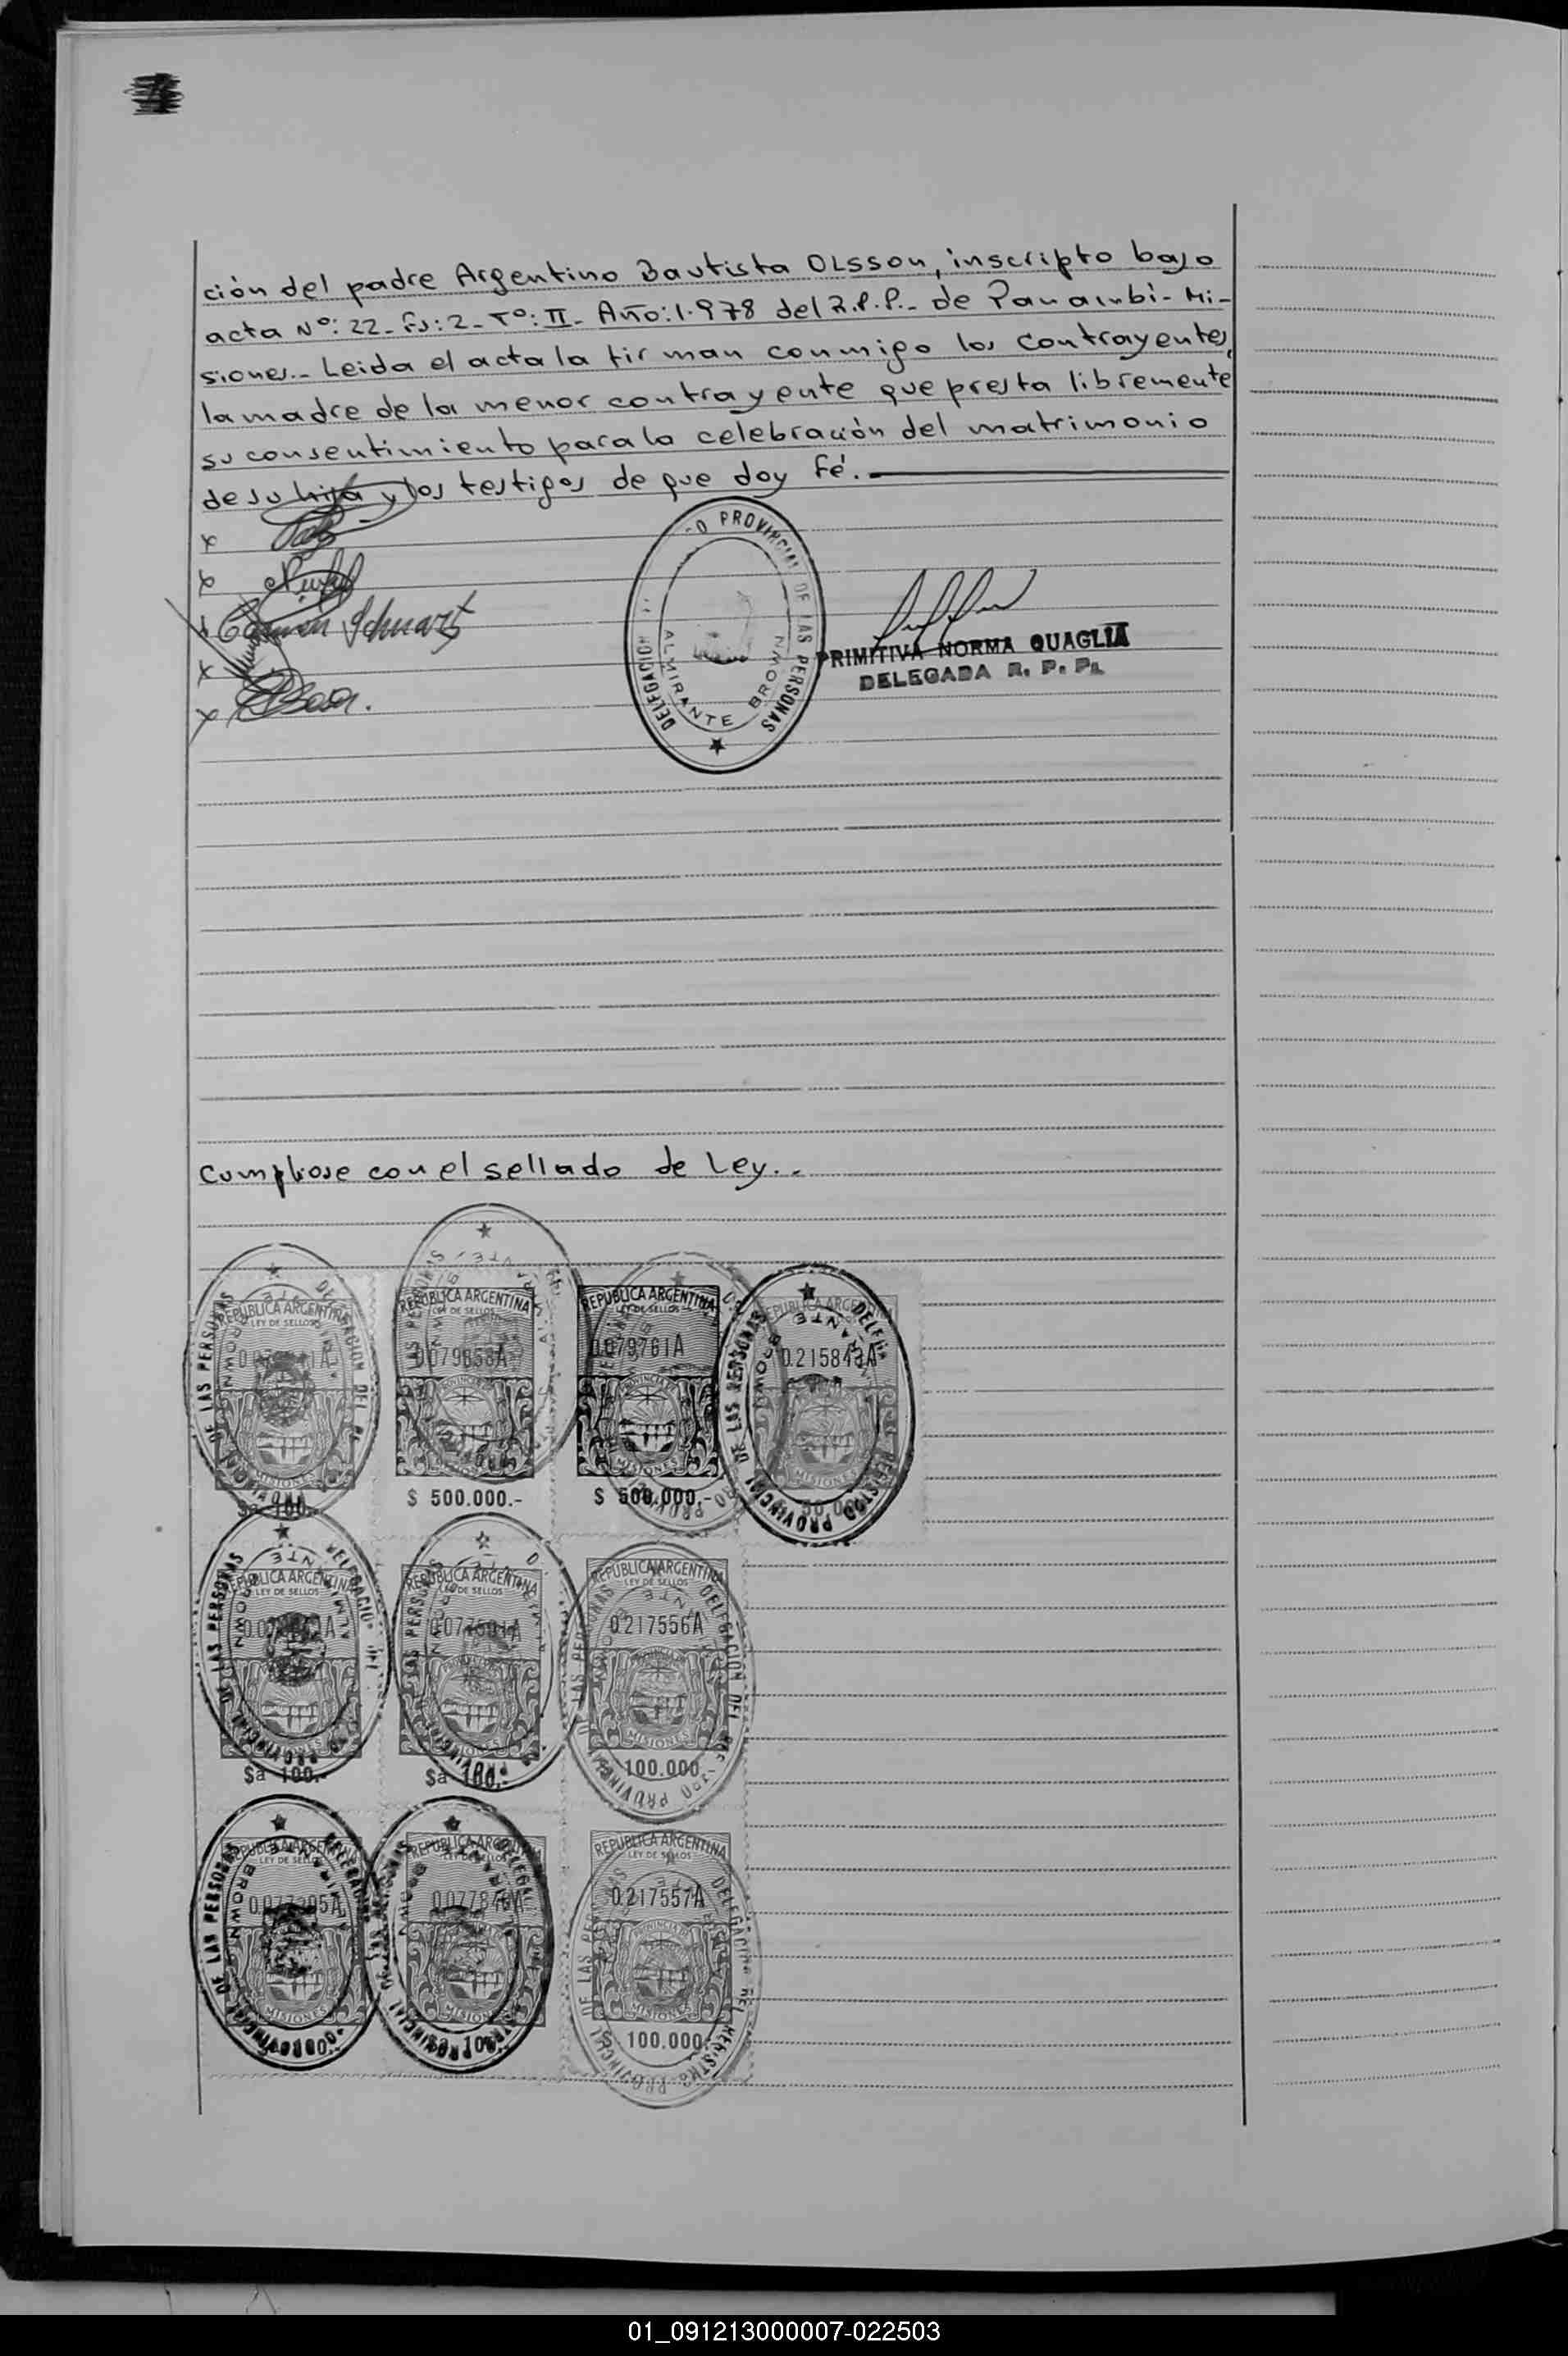 ción del padre Argentino Bautista OLSSON, inscripto bajo
acta Nº: 22- Fº: 2- Tº: II- Año: 1.978 del R.P.P.- de Panambí- Mi-
siones.- Leida el acta la firman conmigo los contrayentes,
la madre de la menor contrayente que presta libremente
su consentimiento para la celebración del matrimonio
de su hija y los testigos de que doy fé.
x
x
Carmen Schwartz
x
x Sosa.
PROVINCIAL DE LAS PERSONAS
DELEGACION
ALMIRANTE BROWN
PRIMITIVA NORMA QUAGLIA
DELEGADA R. P. P.
Cumpliose con el sellado de Ley..
REPUBLICA ARGENTINA
LEY DE SELLOS
MISIONES
$a 100.-
REPUBLICA ARGENTINA
LEY DE SELLOS
$ 500.000.-
REPUBLICA ARGENTINA
LEY DE SELLOS
0.079761A
MISIONES
$ 500.000.-
REPUBLICA ARGENTINA
MISIONES
REPUBLICA ARGENTINA
LEY DE SELLOS
MISIONES
$a 100.-
REPUBLICA ARGENTINA
LEY DE SELLOS
MISIONES
$a 100.-
REPUBLICA ARGENTINA
LEY DE SELLOS
0.217556A
MISIONES
100.000.-
REPUBLICA ARGENTINA
LEY DE SELLOS
MISIONES
REPUBLICA ARGENTINA
LEY DE SELLOS
MISIONES
REPUBLICA ARGENTINA
LEY DE SELLOS
0.217557A
MISIONES
$ 100.000.-
01_091213000007-022503